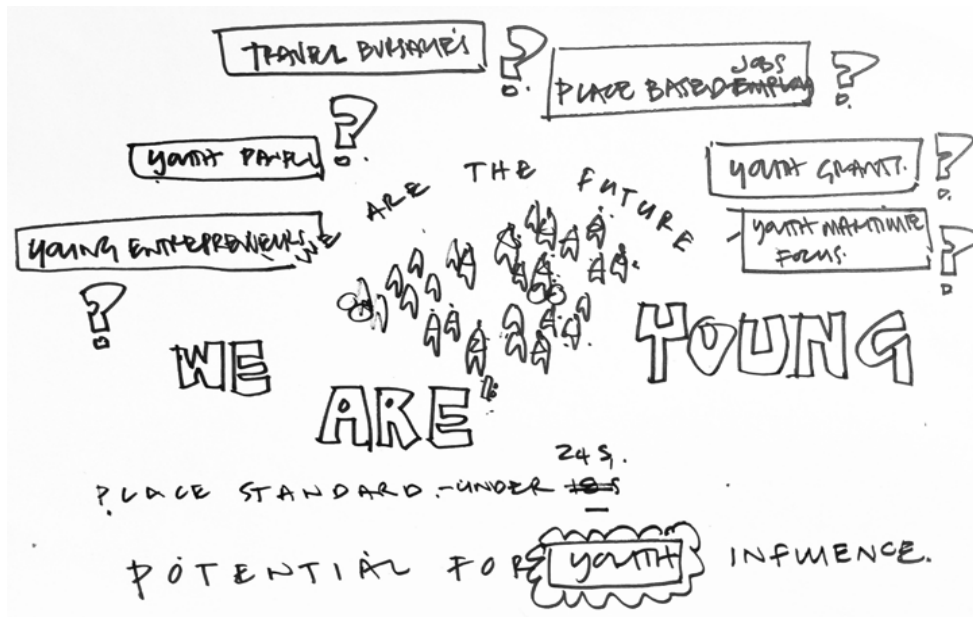 TRAVEL BURSARIES ?
JOBS
PLACE BASED EMPLOY ?
YOUTH PANEL ?
YOUTH GRANT. ?
YOUNG ENTREPRENEURS ?
YOUTH MARITIME
FOCUS. ?
WE ARE THE FUTURE
WE
ARE
YOUNG
24 S.
PLACE STANDARD.-UNDER 18 S
POTENTIAL FOR YOUTH INFLUENCE.